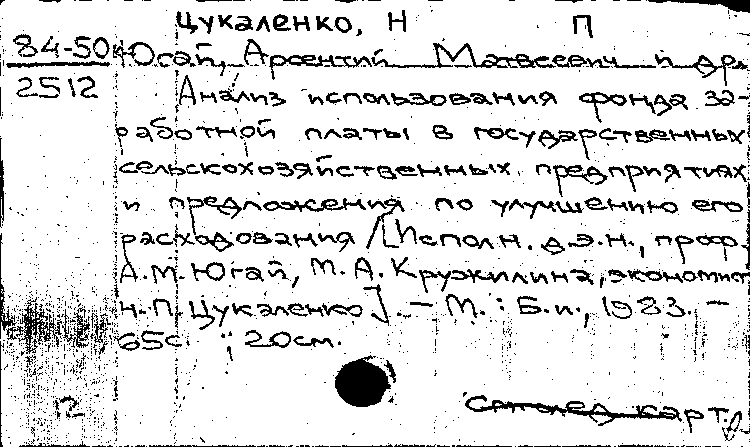 Цукаленко, Н П
84-50
Югай, Арсентий Матвеевич и др.
2512
Анализ использования фонда за-
работной платы в государственных
сельскохозяйственных предприятиях
и предложения по улучшению его
расходования /[Исполн. д.э.н., проф.
А.М.Югай, М.А.Кружилина, экономист
Н.П.Цукаленко]. – М. : Б.и., 1983. –
65с. ; 20см.
12
карт.